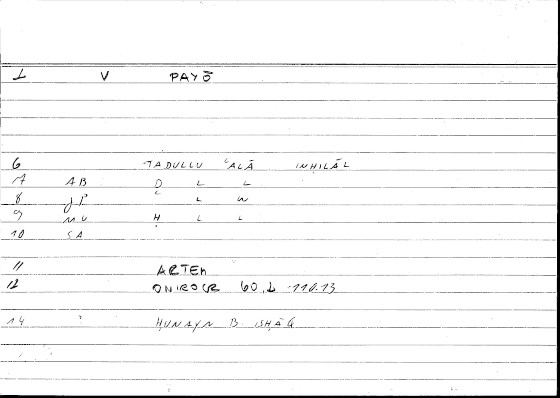 1 V PAYŌ
6 TADULLU ʿALĀ INḤILĀL
7 AB D L L
8 JP L W
9 MU Ḥ L L
10 SA
11 ARTEM
12 ONIROCR 60,1 110.13
14 ḤUNAYN B ISḤĀQ